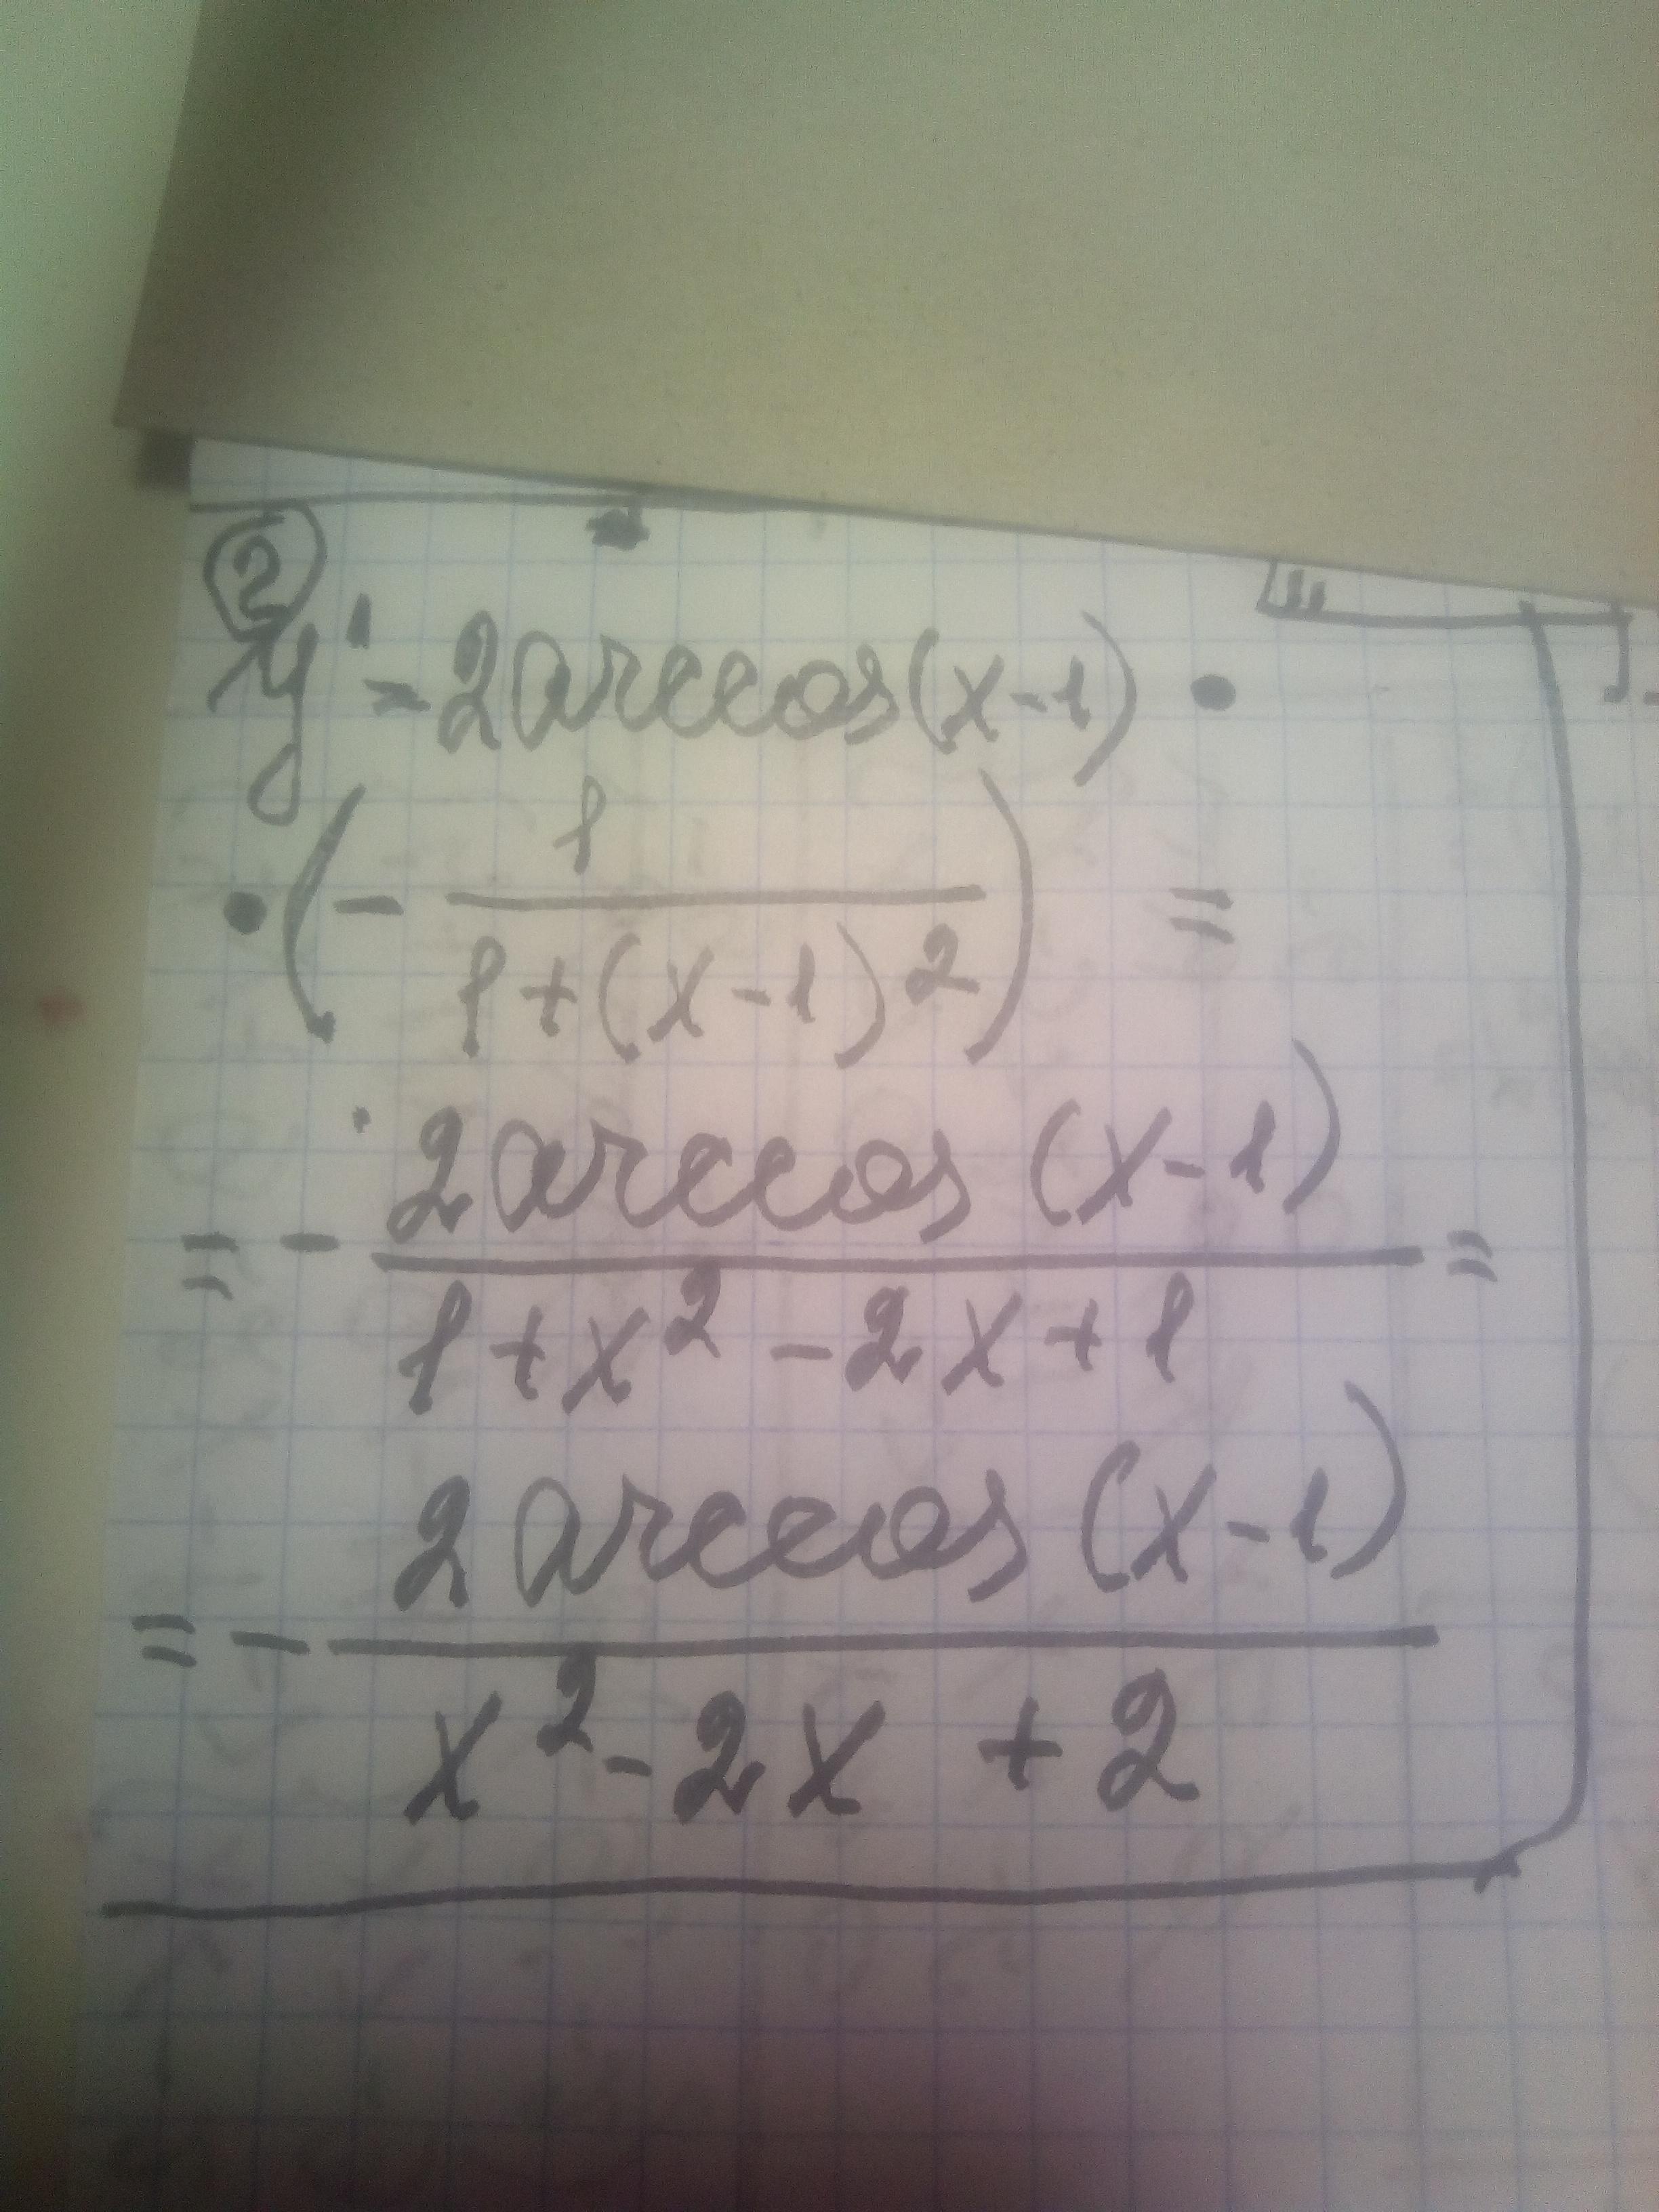 ②
y' = 2arccos(x-1) •
• (- 1/(1+(x-1)²)) =
= - 2arccos(x-1)/(1+x²-2x+1) =
= - 2arccos(x-1)/(x²-2x+2)